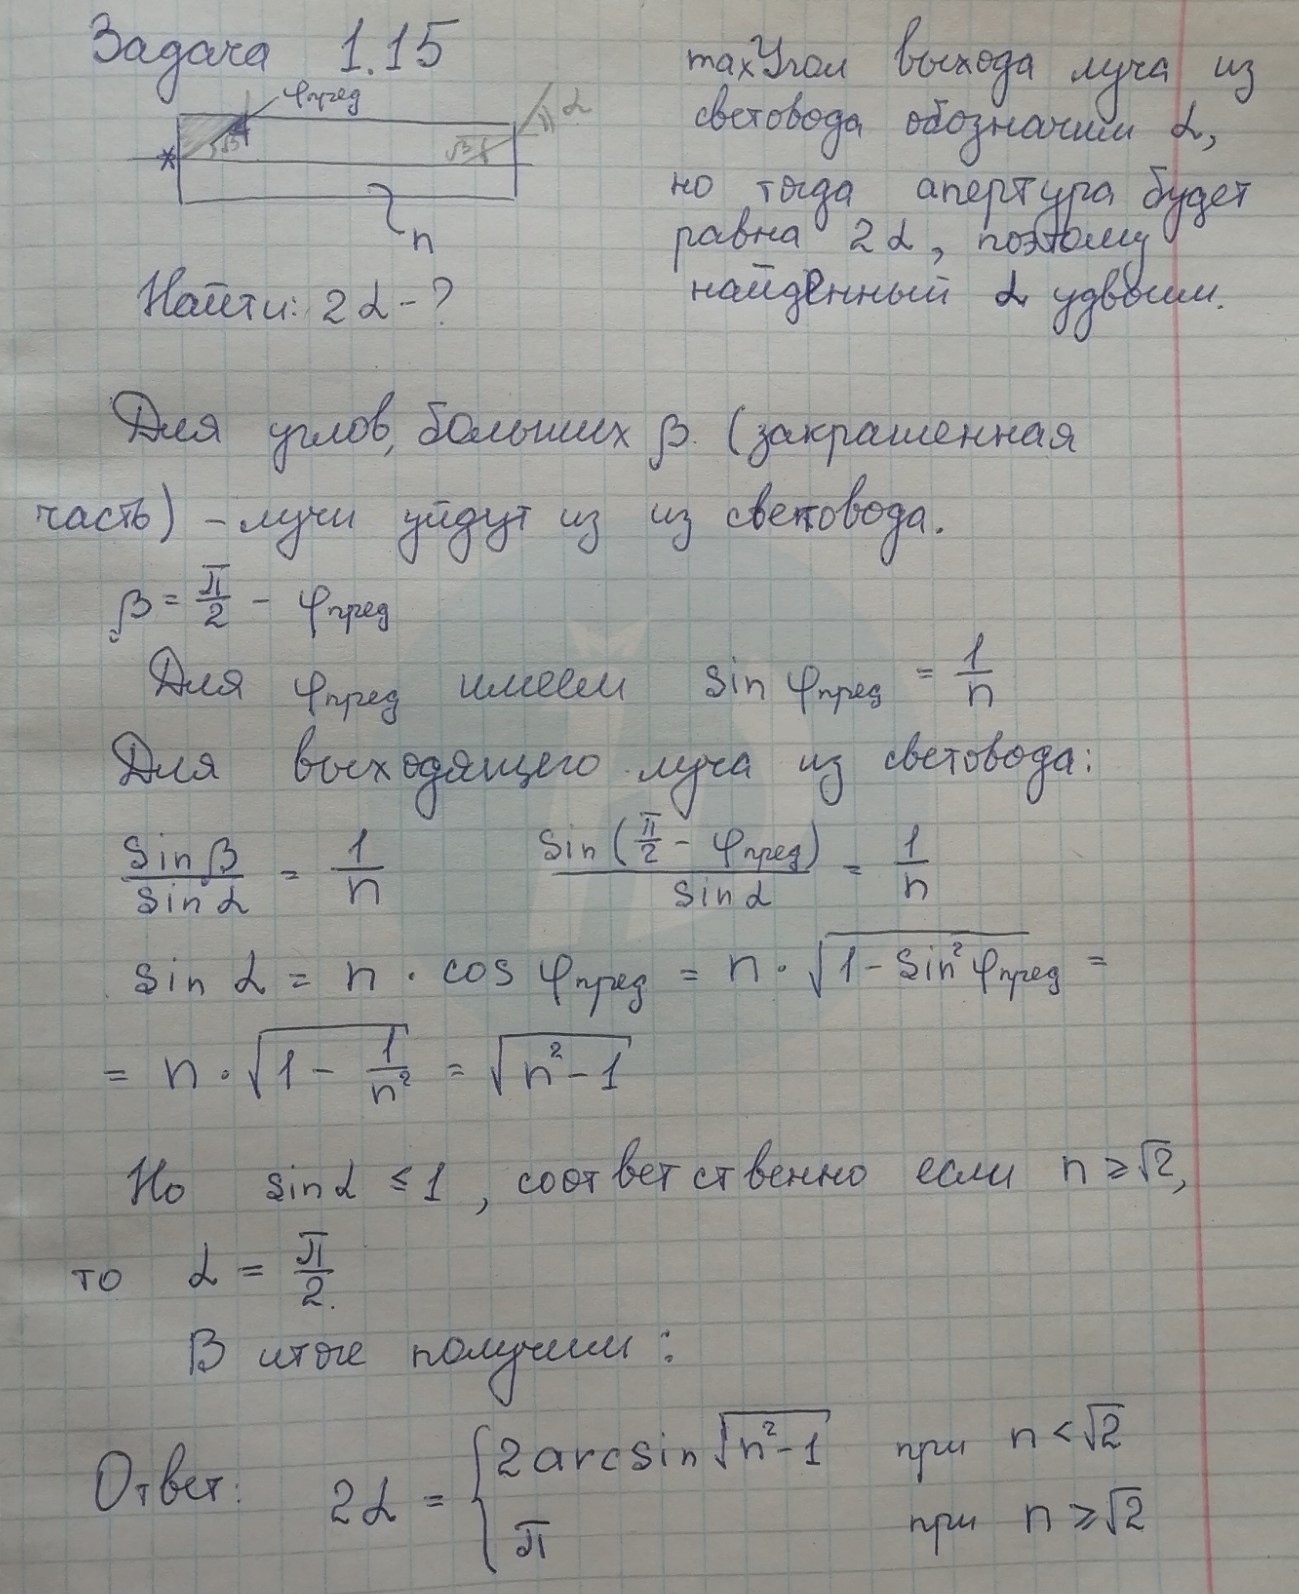 Задача 1.15
φпред
α
β
β
n
Найти: 2α - ?
max Угол выхода луча из
световода обозначим α,
но тогда апертура будет
равна 2α, поэтому
найденный α удвоим.
Для углов, больших β (закрашенная
часть) - лучи уйдут из из световода.
β = π/2 - φпред
Для φпред имеем sin φпред = 1/n
Для выходящего луча из световода:
sin β / sin α = 1/n    sin(π/2 - φпред) / sin α = 1/n
sin α = n · cos φпред = n · √(1 - sin² φпред) =
= n · √(1 - 1/n²) = √(n² - 1)
Но sin α ≤ 1, соответственно если n ≥ √2,
то α = π/2.
В итоге получим:
Ответ: 2α = { 2 arcsin √(n² - 1) при n < √2
π при n ≥ √2